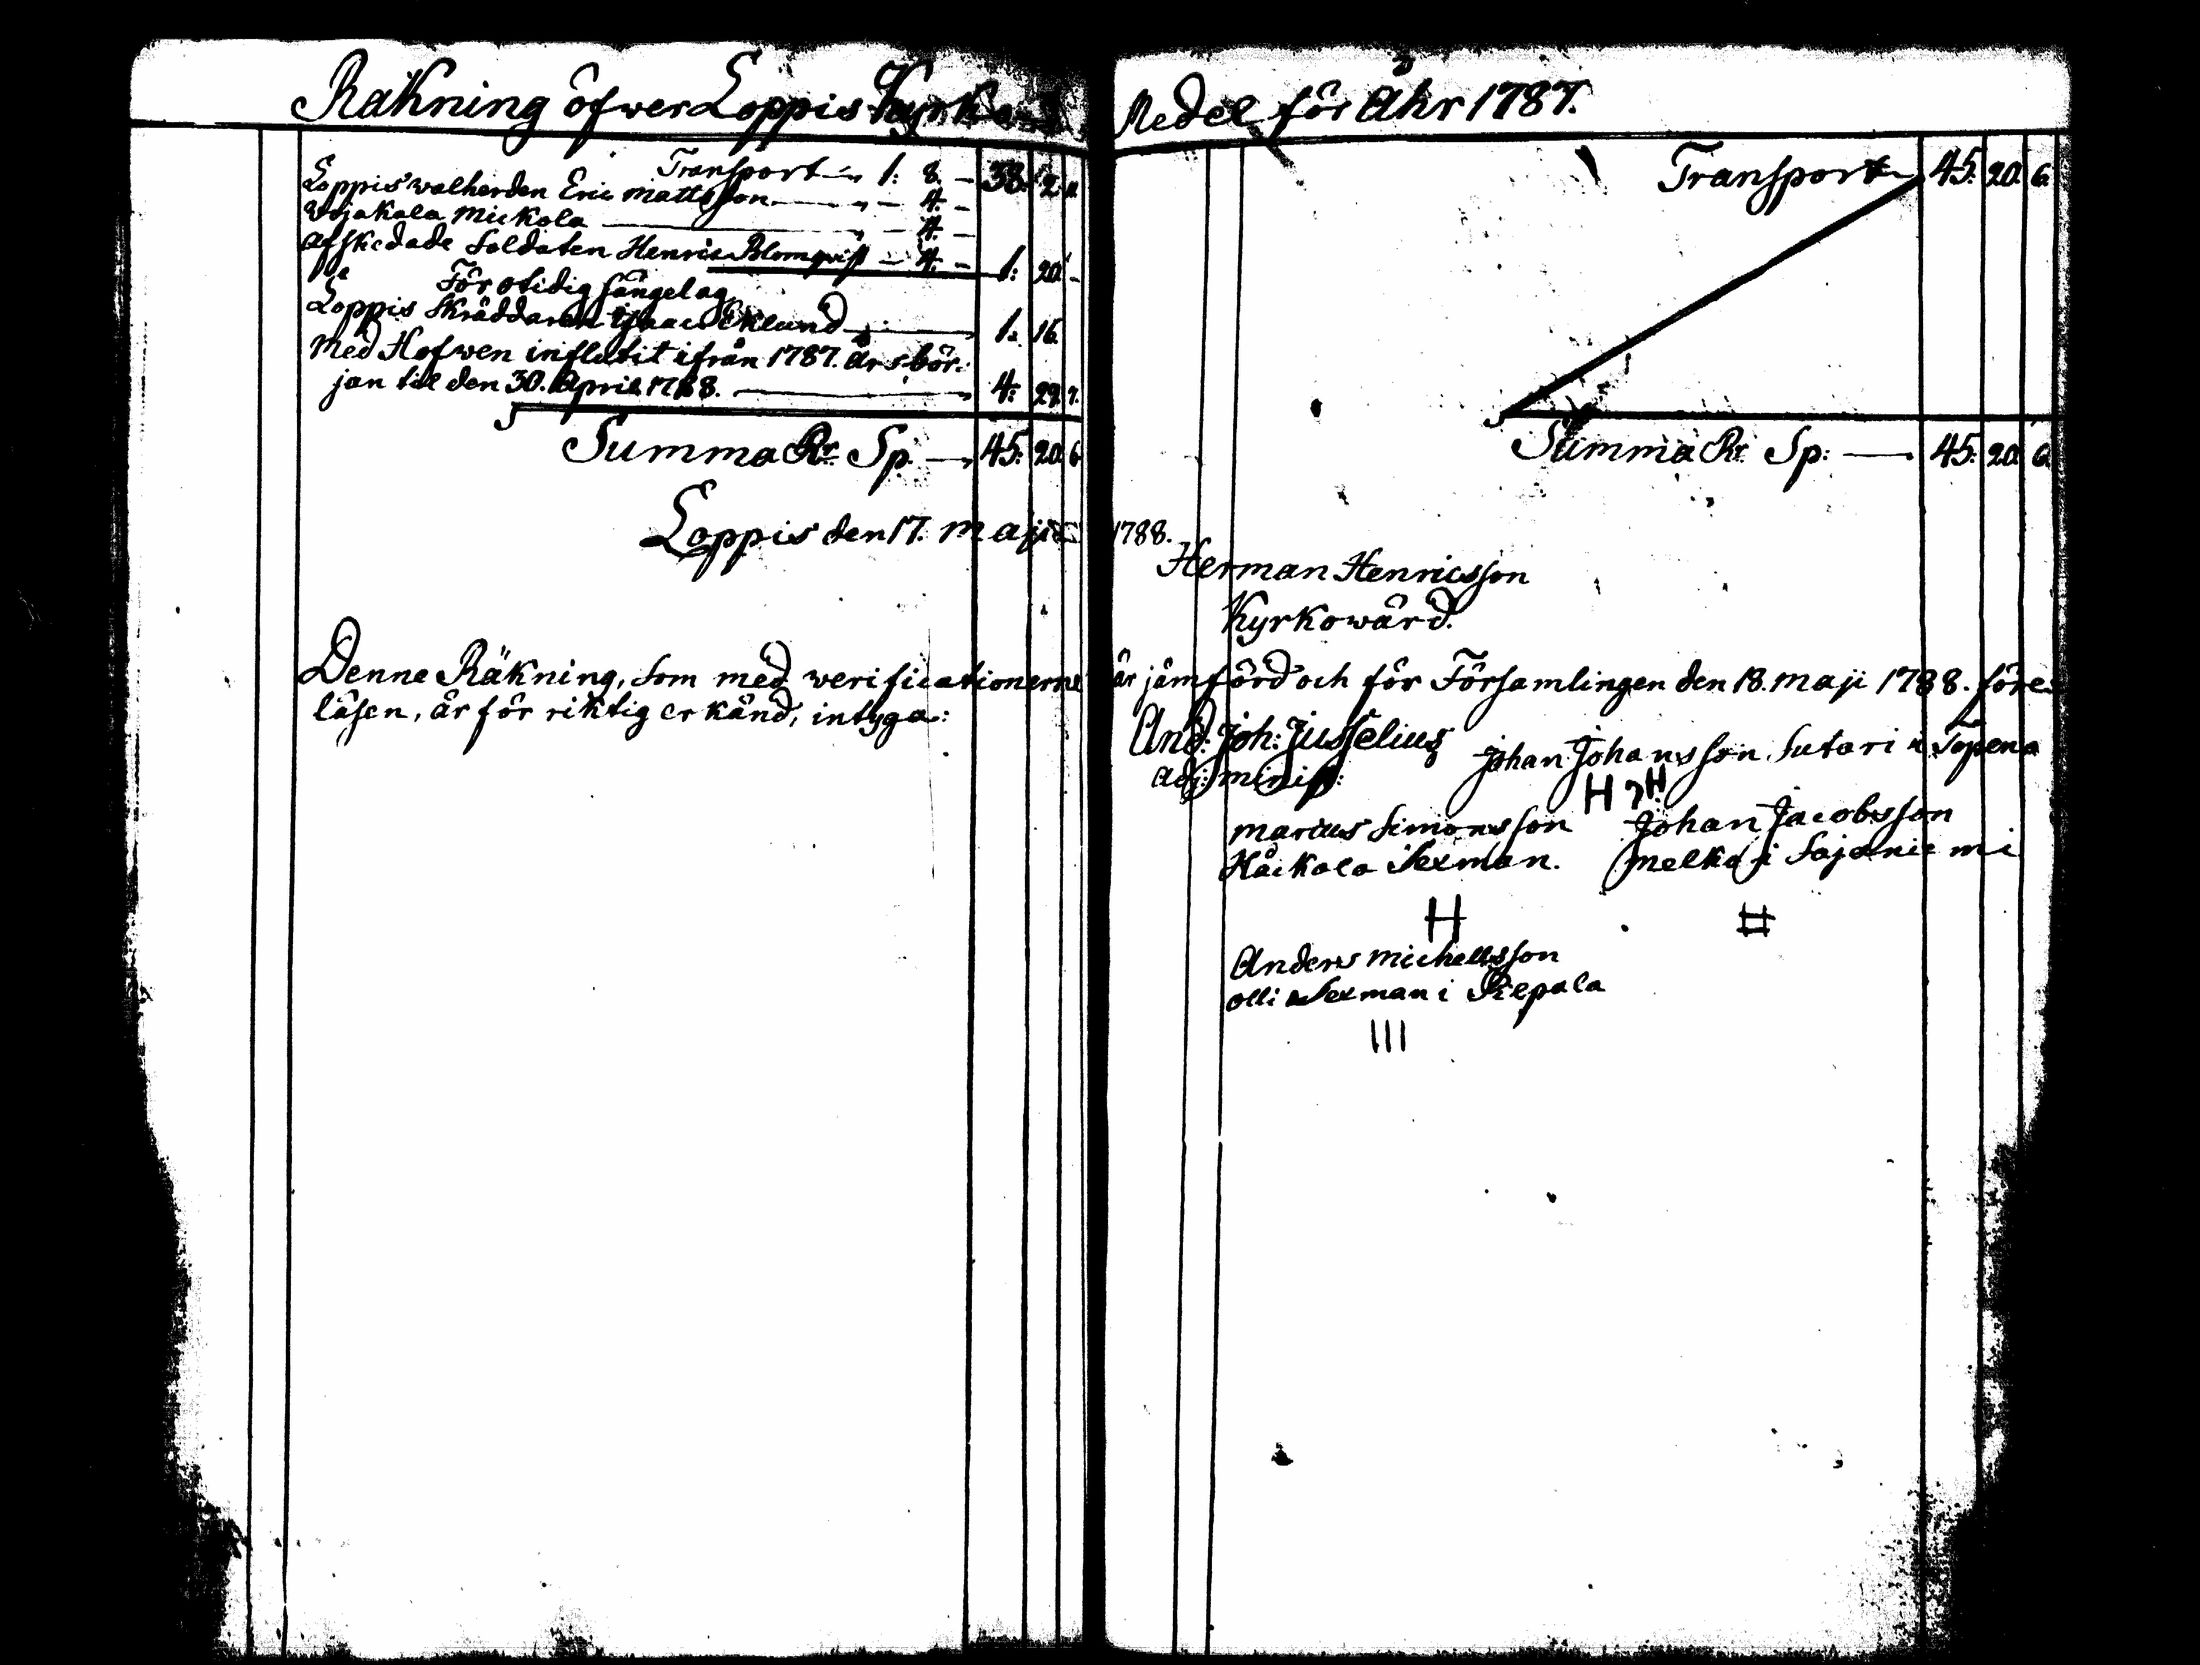 Räkning öfwer Loppis Kyrko-
Transport 1: 8. — 38: 2
Loppis walherden Eric Mattsson — 4. —
Wojakala Mickola — 4. —
Afskedade Soldaten Henric Blomqvist — 4. — 1: 20 —
För otidig sängelag
Loppis Skräddaren Isaac Eklund — 1: 16
Med Hofwen influtit ifrån 1787. års bör-
jan til den 30. April 1788. — 4: 29. 7.
Summa Rr Sp. — 45: 20. 6
Loppis den 17. Maji
Denne Räkning, som med werificationerne
läsen, är för riktig erkänd, intyga:
Medel för Åhr 1787.
Transport 45. 20. 6.
Summa Rr Sp: — 45: 20. 6.
1788.
Herman Henricsson
Kyrkowärd.
är jämförd och för Församlingen den 18. Maji 1788. före-
And: Joh: Jusselius Johan Johansson Sutari Topeno
Adj: minist:
Marcus Simonsson Johan Jacobsson
Sexman. Melko i Sajaniemi
Anders Michellsson
Olli Sexman i